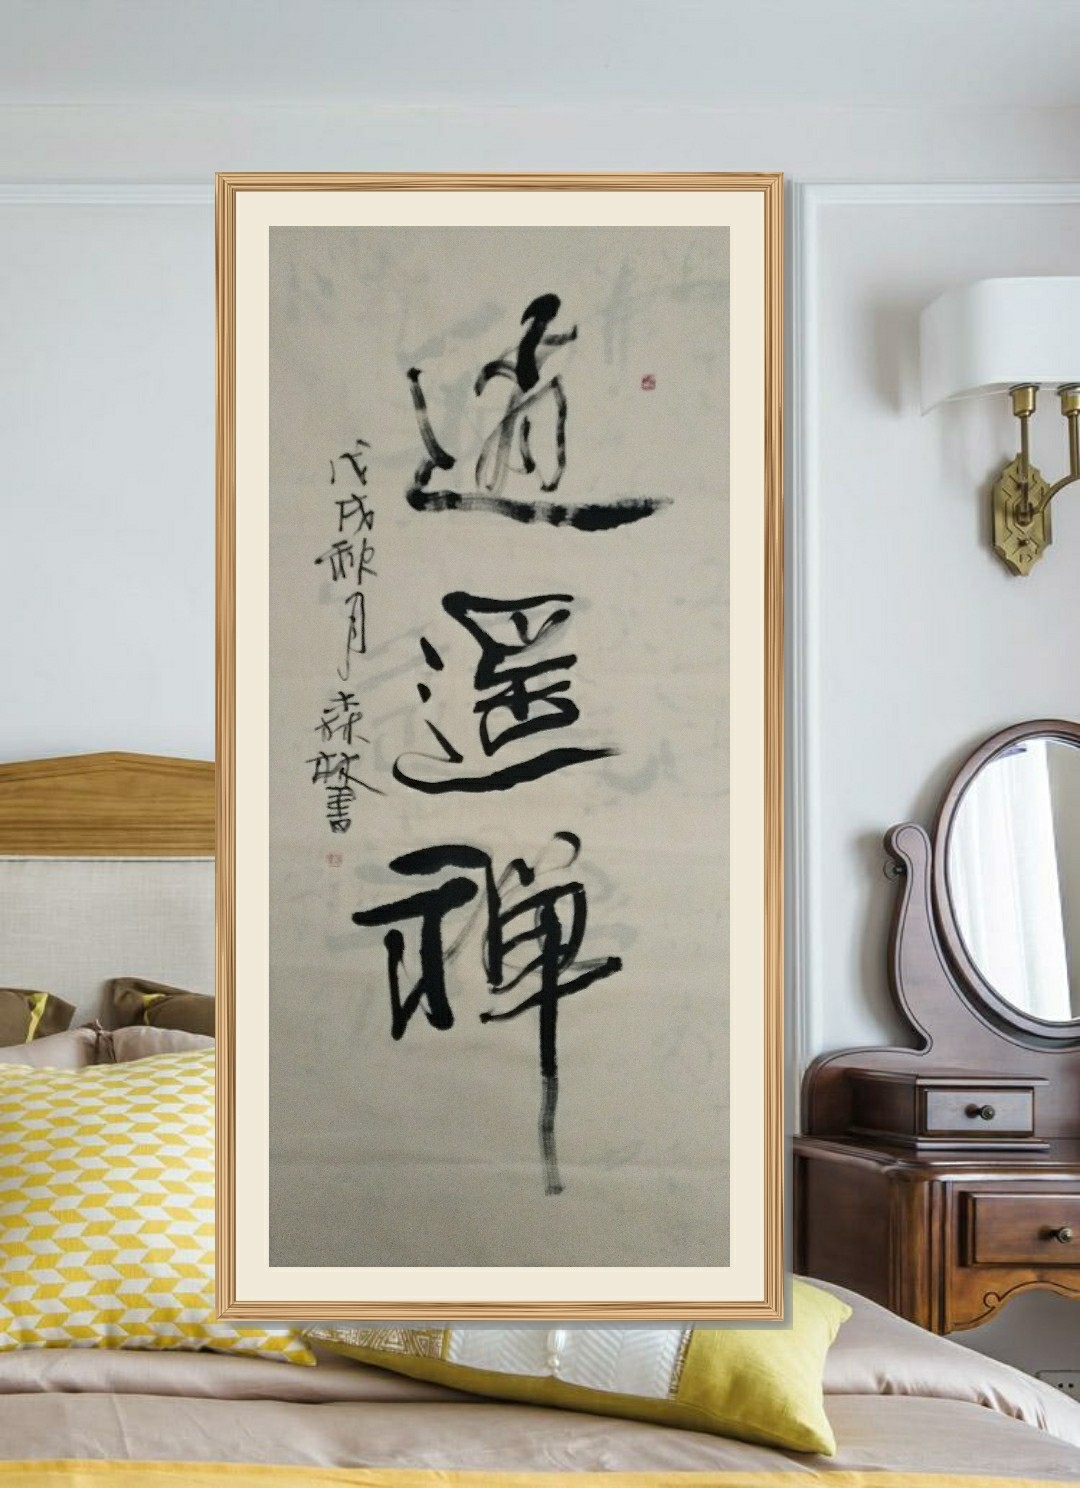 逍遥禅
戊戌秋月森林書